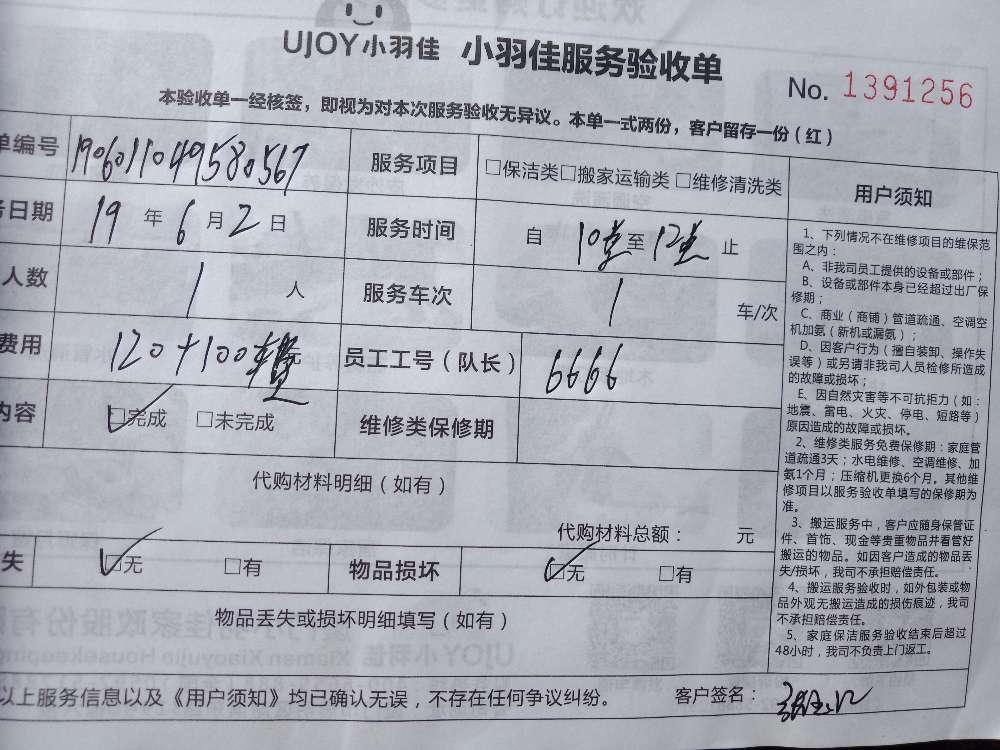 UJOY小羽佳 小羽佳服务验收单
No. 1391256
本验收单一经核签，即视为对本次服务验收无异议。本单一式两份，客户留存一份（红）
单编号 190601104958 0567 服务项目 □保洁类□搬家运输类 □维修清洗类
务日期 19 年 6 月 2 日 服务时间 自 10点 至 12点 止
人数 1 人 服务车次 1 车/次
费用 120+100 元 员工工号（队长） 6666
内容 □完成 □未完成 维修类保修期
代购材料明细（如有）
代购材料总额： 元
失 □无 □有 物品损坏 □无 □有
物品丢失或损坏明细填写（如有）
以上服务信息以及《用户须知》均已确认无误，不存在任何争议纠纷。 客户签名：
用户须知
1、下列情况不在维修项目的维保范
围之内：
A、非我司员工提供的设备或部件；
B、设备或部件本身已经超过出厂保
修期；
C、商业（商铺）管道疏通、空调空
机加氨（新机或漏氨）；
D、因客户行为（擅自装卸、操作失
误等）或另请非我司人员检修所造成
的故障或损坏；
E、因自然灾害等不可抗拒力（如：
地震、雷电、火灾、停电、短路等）
原因造成的故障或损坏。
2、维修类服务免费保修期：家庭管
道疏通3天；水电维修、空调维修、加
氨1个月；压缩机更换6个月。其他维
修项目以服务验收单填写的保修期为
准。
3、搬运服务中，客户应随身保管证
件、首饰、现金等贵重物品并看管好
搬运的物品。如因客户造成的物品丢
失/损坏，我司不承担赔偿责任。
4、搬运服务验收时，如外包装或物
品外观无搬运造成的损伤痕迹，我司
不承担赔偿责任。
5、家庭保洁服务验收结束后超过
48小时，我司不负责上门返工。